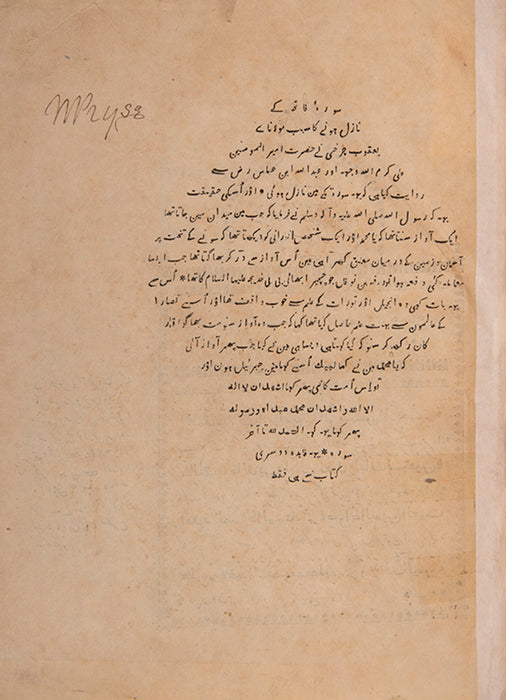 سورۂ فاتحہ کے
نازل ہونے کا سبب مولانا ے
یعقوب چرخی نے حضرت امیر المومنین
علی کرم الله وجہہ اور عبد الله ابن عباس رض سے
روایت کیا ہی کہ یہہ سورة کے مین نازل ہوئی * اور اُسکی حقیقت
یہہ کہ رسول الله صلی الله علیہ و آلہ وسلم نے فرمایا کہ جب مین میدان مین جاتا تھا
ایک آواز سنتا تھا کہ یا محمد اور ایک شخص نورانی کو دیکھتا تھا کہ سونے کے تخت پر
آسمان و زمین کے درمیان معلق کھڑا ہی مین اُس آواز سے ڈر کر بھاگتا تھا جب ایسا
معاملہ کئی دفعہ ہوا تو ورقہ بن نوفل جو چچیرا بھائی بی بی خدیجہ علیہا السلام کا تھا * اُس سے
یہہ بات کہی وہ انجیل اور تورات کے علم سے خوب واقف تھا اور اُسنے نصارا
کے عالمون سے بہت علم حاصل کیا تھا کہا کہ جب وہ آواز سنو مت بھاگو اور
کان رکھہ کر سنو کہ کیا کہتا ہی ویسا ہی مین نے کیا جب پھر آواز آئی
کہ یا محمد مین نے کہا لبیک اُسنے کہا مین جبرئیل ہون اور
تو اس اُمت کا نبی پھر کہا اشهد ان لا اله
الا الله و اشهد ان محمد عبده و رسوله
پھر کہا یہہ کہہ الحمد لله تا آخر
سورہ * یہہ فایدہ دوسری
کتاب سے ہی فقط